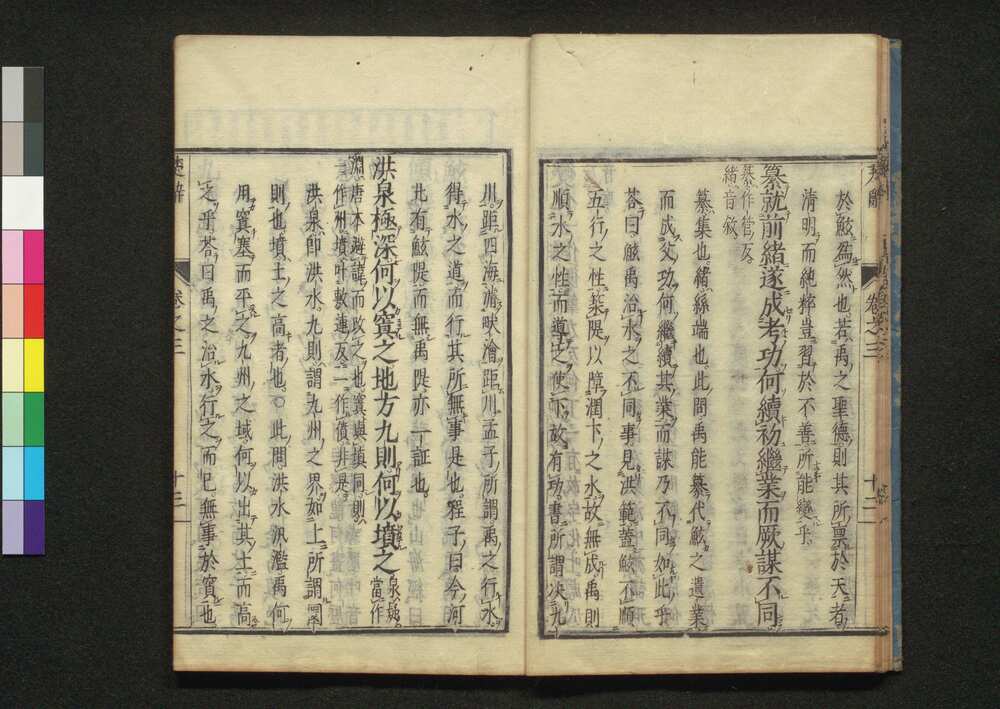 於鮌爲然也若禹之聖德則其所稟於天者
清明而純粹豈習於不善所能變乎
纂就前緒遂成考功何續初繼業而厥謀不同
纂作管反
緒音敘
纂集也緒絲端也此問禹能纂代鮌之遺業
而成父功何繼續其業而謀乃不同如此乎
荅曰鮌禹治水之不同事見洪範蓋鮌不順
五行之性築隄以障潤下之水故無成禹則
順水之性而導之使下故有功書所謂决九
楚辭
卷之三
十二
川距四海濬畎澮距川孟子所謂禹之行水
得水之道而行其所無事是也程子曰今河
北有鮌隄而無禹隄亦一証也
洪泉極深何以窴之地方九則何以墳之
泉疑
當作
淵唐本避諱而改之也窴與填同則
一作州墳叶敷連反一作僨非是
洪泉卽洪水九則謂九州之界如上所謂圜
則也墳土之高者也○此問洪水汎濫禹何
用窴塞而平之九州之域何以出其土而高
之乎荅曰禹之治水行之而已無事於窴也
楚辭
卷之三
十三